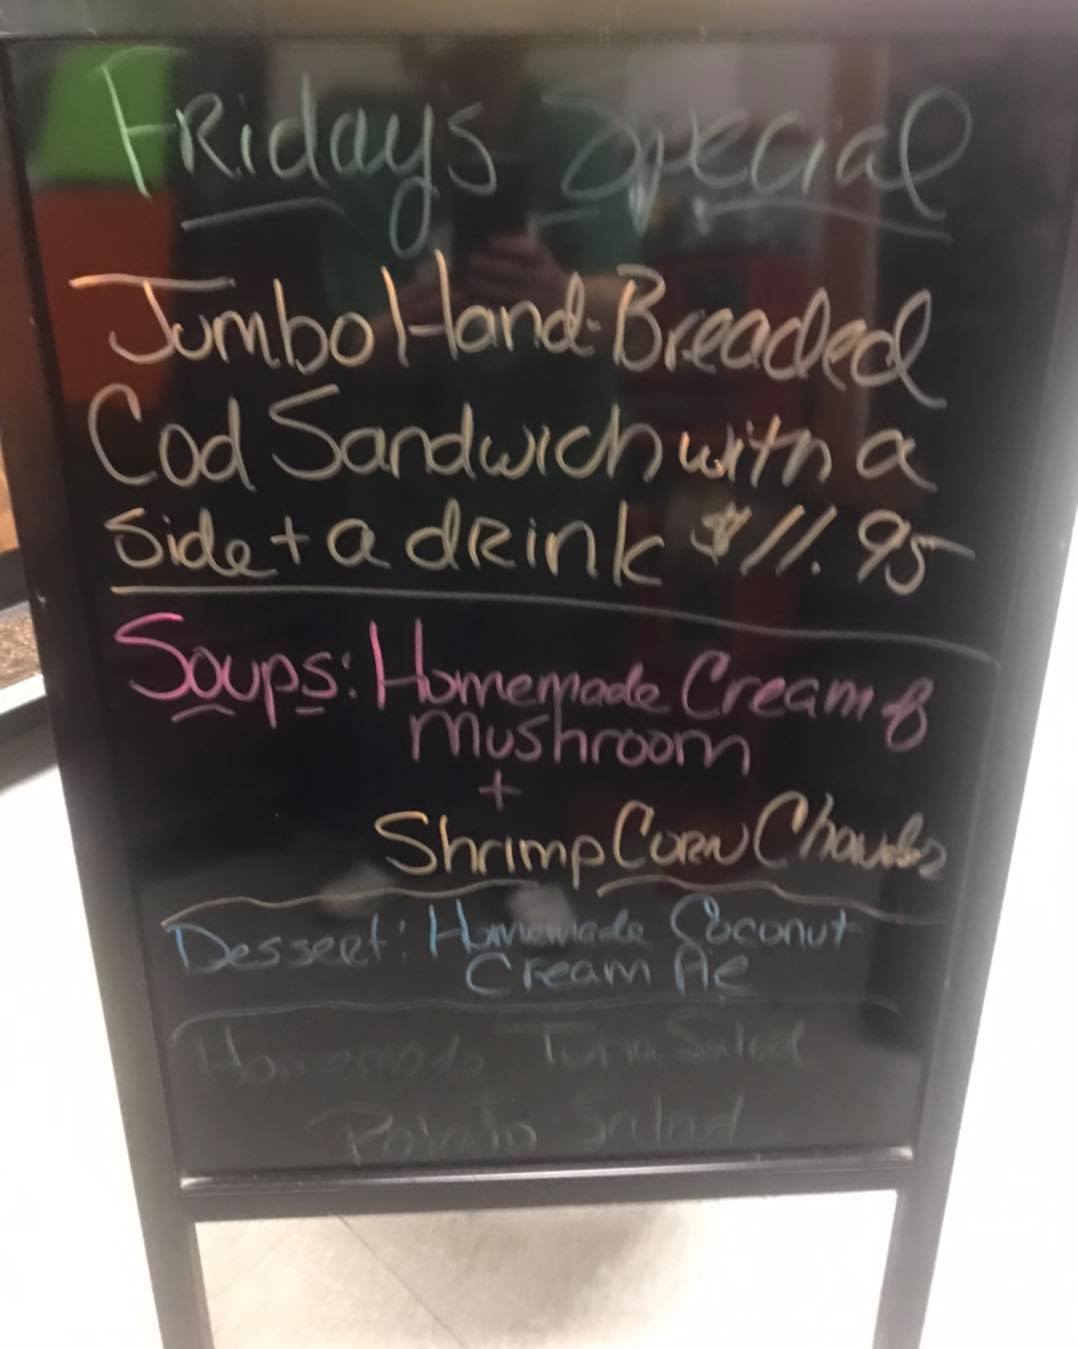 Fridays Special
Jumbo Hand-Breaded
Cod Sandwich with a
Side + a drink $11.95
Soups: Homemade Cream of
Mushroom
+
Shrimp Corn Chowder
Dessert: Homemade Coconut
Cream Pie
Homemade Tuna Salad
Potato Salad